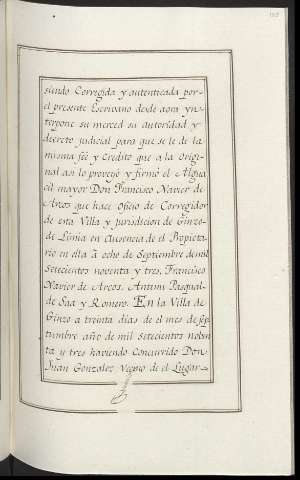 siendo Corregida y autenticada por
el presente Escrivano desde aora ynt-
terpone su merced su autoridad y
decreto judicial para que se le de la
misma feé y Credito que a la Origi-
nal asi lo proveyó y firmó el Algua
cil mayor Don Francisco Navier de
Arcos que hace oficio de Corregidor
de esta Villa y jurisdicion de Ginzo-
de Limia en Ausencia de el Propieta-
rio en ella à ocho de Septiembre de mil
Setecientos noventa y tres. Francisco
Navier de Arcos. Antemi Pasqual-
de Saa y Romero. En la Villa de
Ginzo a treinta dias de el mes de sep
tiembre año de mil Setecientos noben
ta y tres haviendo Concurrido Don-
Juan Gonzalez Vecino de el Lugar